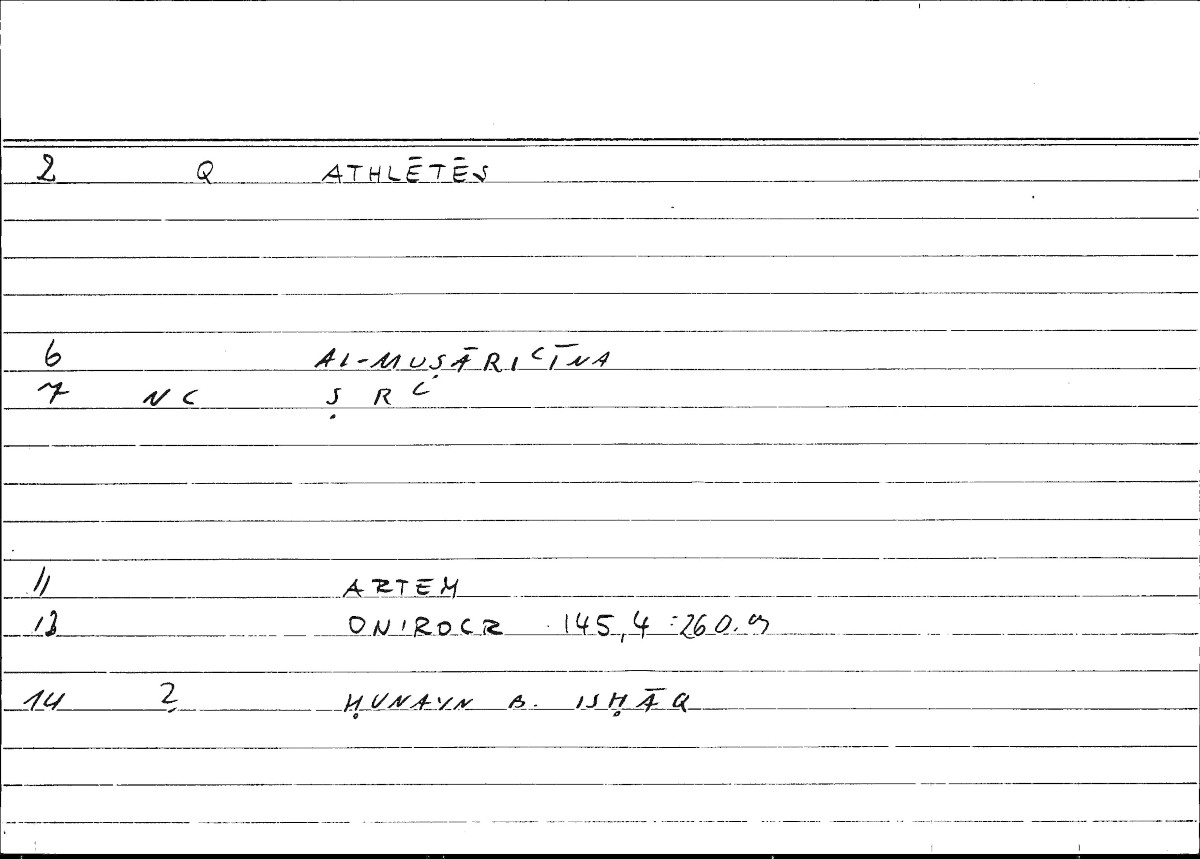 2 Q ATHLĒTĒS
6 AL-MUṢĀRIʿĪNA
7 NC Ṣ R ʿ
11 ARTEM
13 ONIROCR 145,4 : 260.9
14 2 ḤUNAYN B. ISḤĀQ